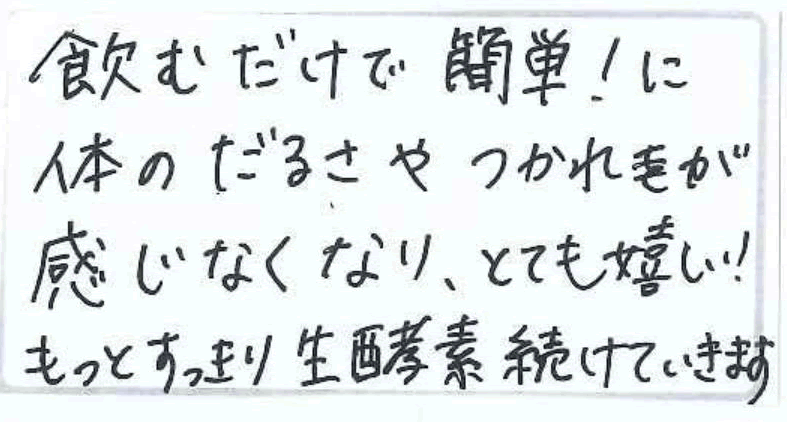 飲むだけで簡単！に
体のだるさやつかれもが
感じなくなり、とても嬉しい！
もっとすっきり生酵素続けていきます